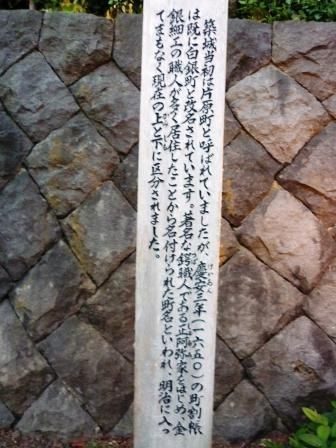 築城当初は片原町と呼ばれていましたが、慶安三年(一六五〇)の町割帳
は既に白銀町と改名されています。著名な鍔職人である正阿弥家をはじめ、金
銀細工の職人が多く居住したことから名付けられた町名といわれ、明治に入っ
てまもなく現在の上と下に区分されました。